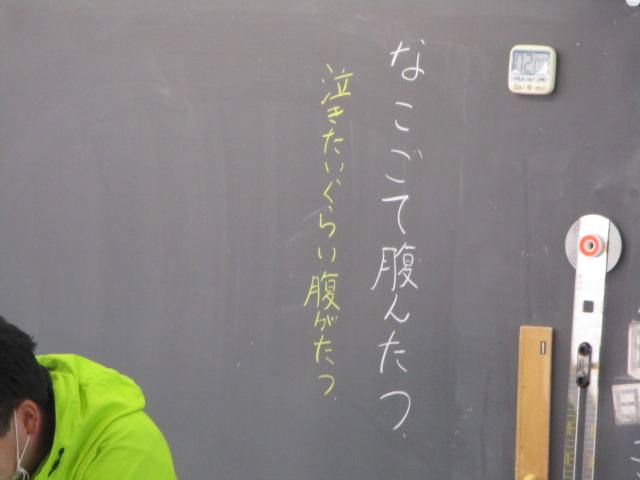 なこごて腹んたつ.
泣きたいぐらい腹がたつ.